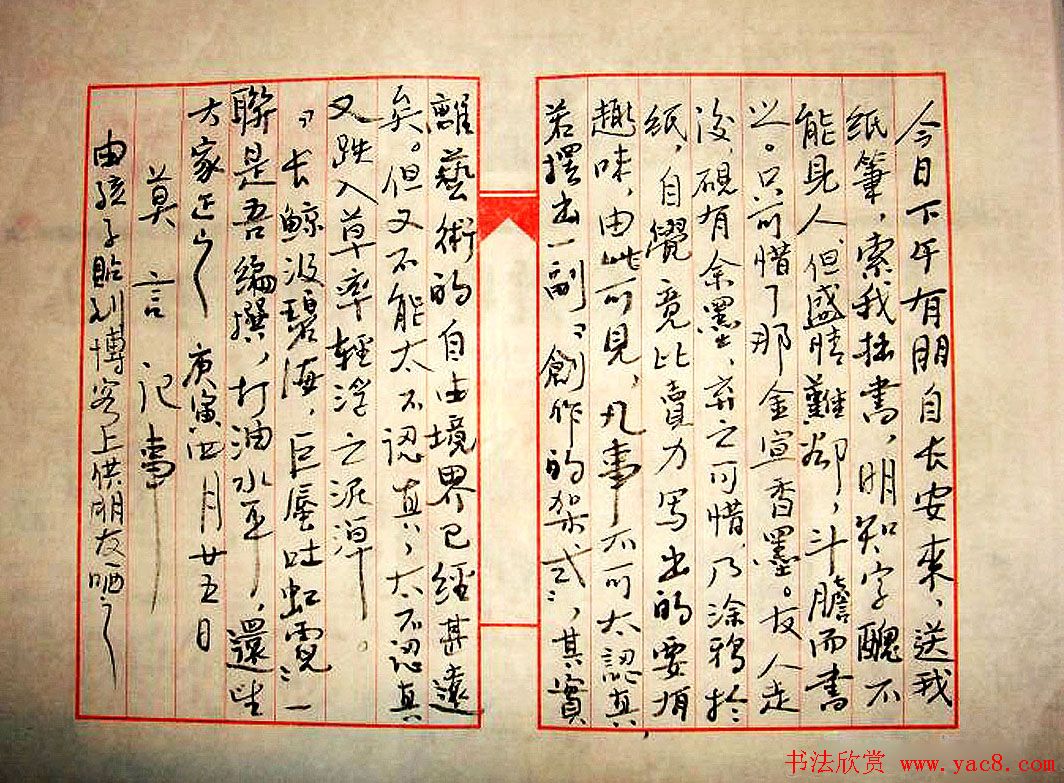 今日下午有朋自长安来，送我
纸筆，索我拙書，明知字醜不
能見人，但盛情難卻，斗膽而書
之。只可惜了那金宣香墨。友人走
後，硯有余墨，弃之可惜，乃涂鴉於
纸，自覺竟比賣力写出的要有
趣味，由此可見，凡事不可太認真，
若擺出一副“創作的架式”，其實
離藝術的自由境界已經甚遠
矣。但又不能太不認真，太不認真
又跌入草率輕浮之泥淖。
“长鯨汲碧海，巨蜃吐虹霓”一
聯是吾編撰，打油水平，還望
大家正之 庚寅四月廿五日
莫言记事
由孩子貼到博客上供朋友哂之
书法欣赏 www.yac8.com